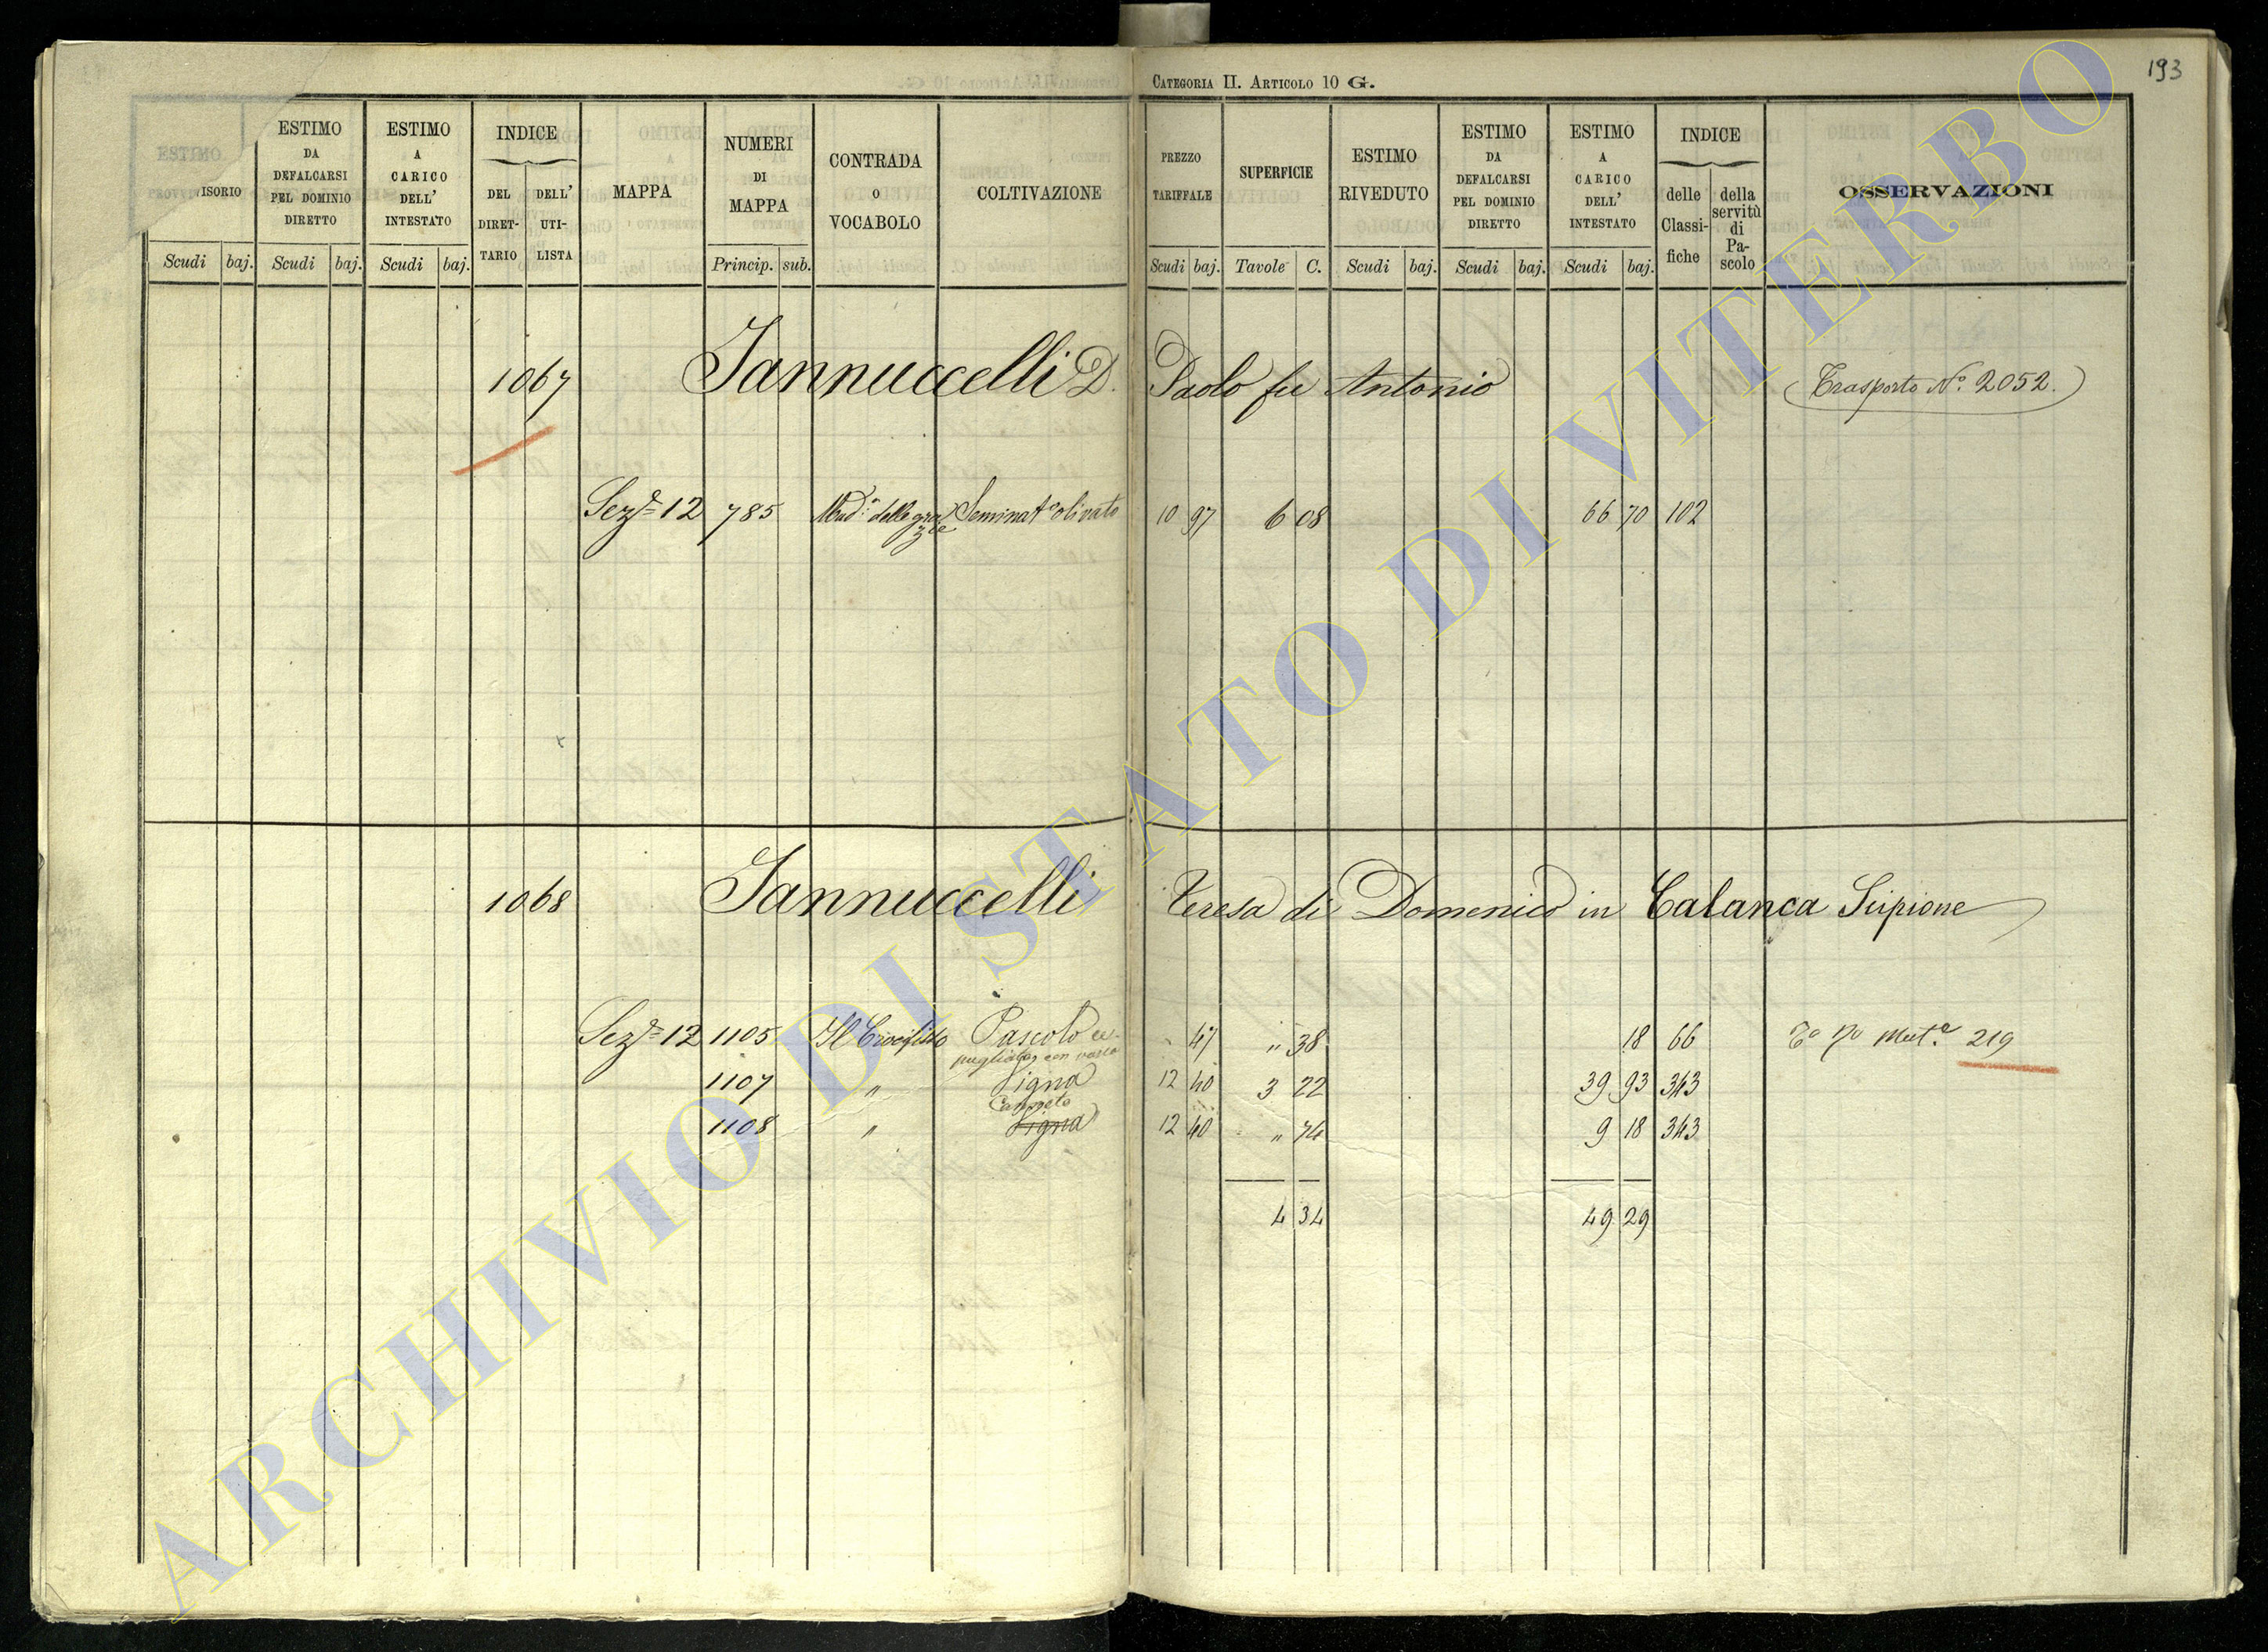 CATEGORIA II. ARTICOLO 10 G.
193
ESTIMO PROVVISORIO
ESTIMO DA DEFALCARSI PEL DOMINIO DIRETTO
ESTIMO A CARICO DELL' INTESTATO
INDICE
DEL DIRET-TARIO
DELL' UTI-LISTA
MAPPA
NUMERI DI MAPPA
CONTRADA O VOCABOLO
COLTIVAZIONE
PREZZO TARIFFALE
SUPERFICIE
ESTIMO RIVEDUTO
ESTIMO DA DEFALCARSI PEL DOMINIO DIRETTO
ESTIMO A CARICO DELL' INTESTATO
INDICE
delle Classi-fiche
della servitù di Pa-scolo
OSSERVAZIONI
Scudi baj. Scudi baj. Scudi baj. Princip. sub. Scudi baj. Tavole C. Scudi baj. Scudi baj. Scudi baj.
1067 Iannuccelli D. Paolo fu Antonio (Trasporto N.º 2052.)
Sez.e 12 785 Mad.a delle grazie Seminat.o olivato 10 97 6 08 66 70 102
1068 Iannuccelli Teresa di Domenico in Calanca Scipione
Sez.e 12 1105 Il Crocifisso Pascolo 47 " 38 18 66 219
con vasca
1107 " Vigna 12 40 3 22 39 93 343
Canneto
1108 " Vigna 12 40 " 74 9 18 343
4 34 49 29
ARCHIVIO DI STATO DI VITERBO